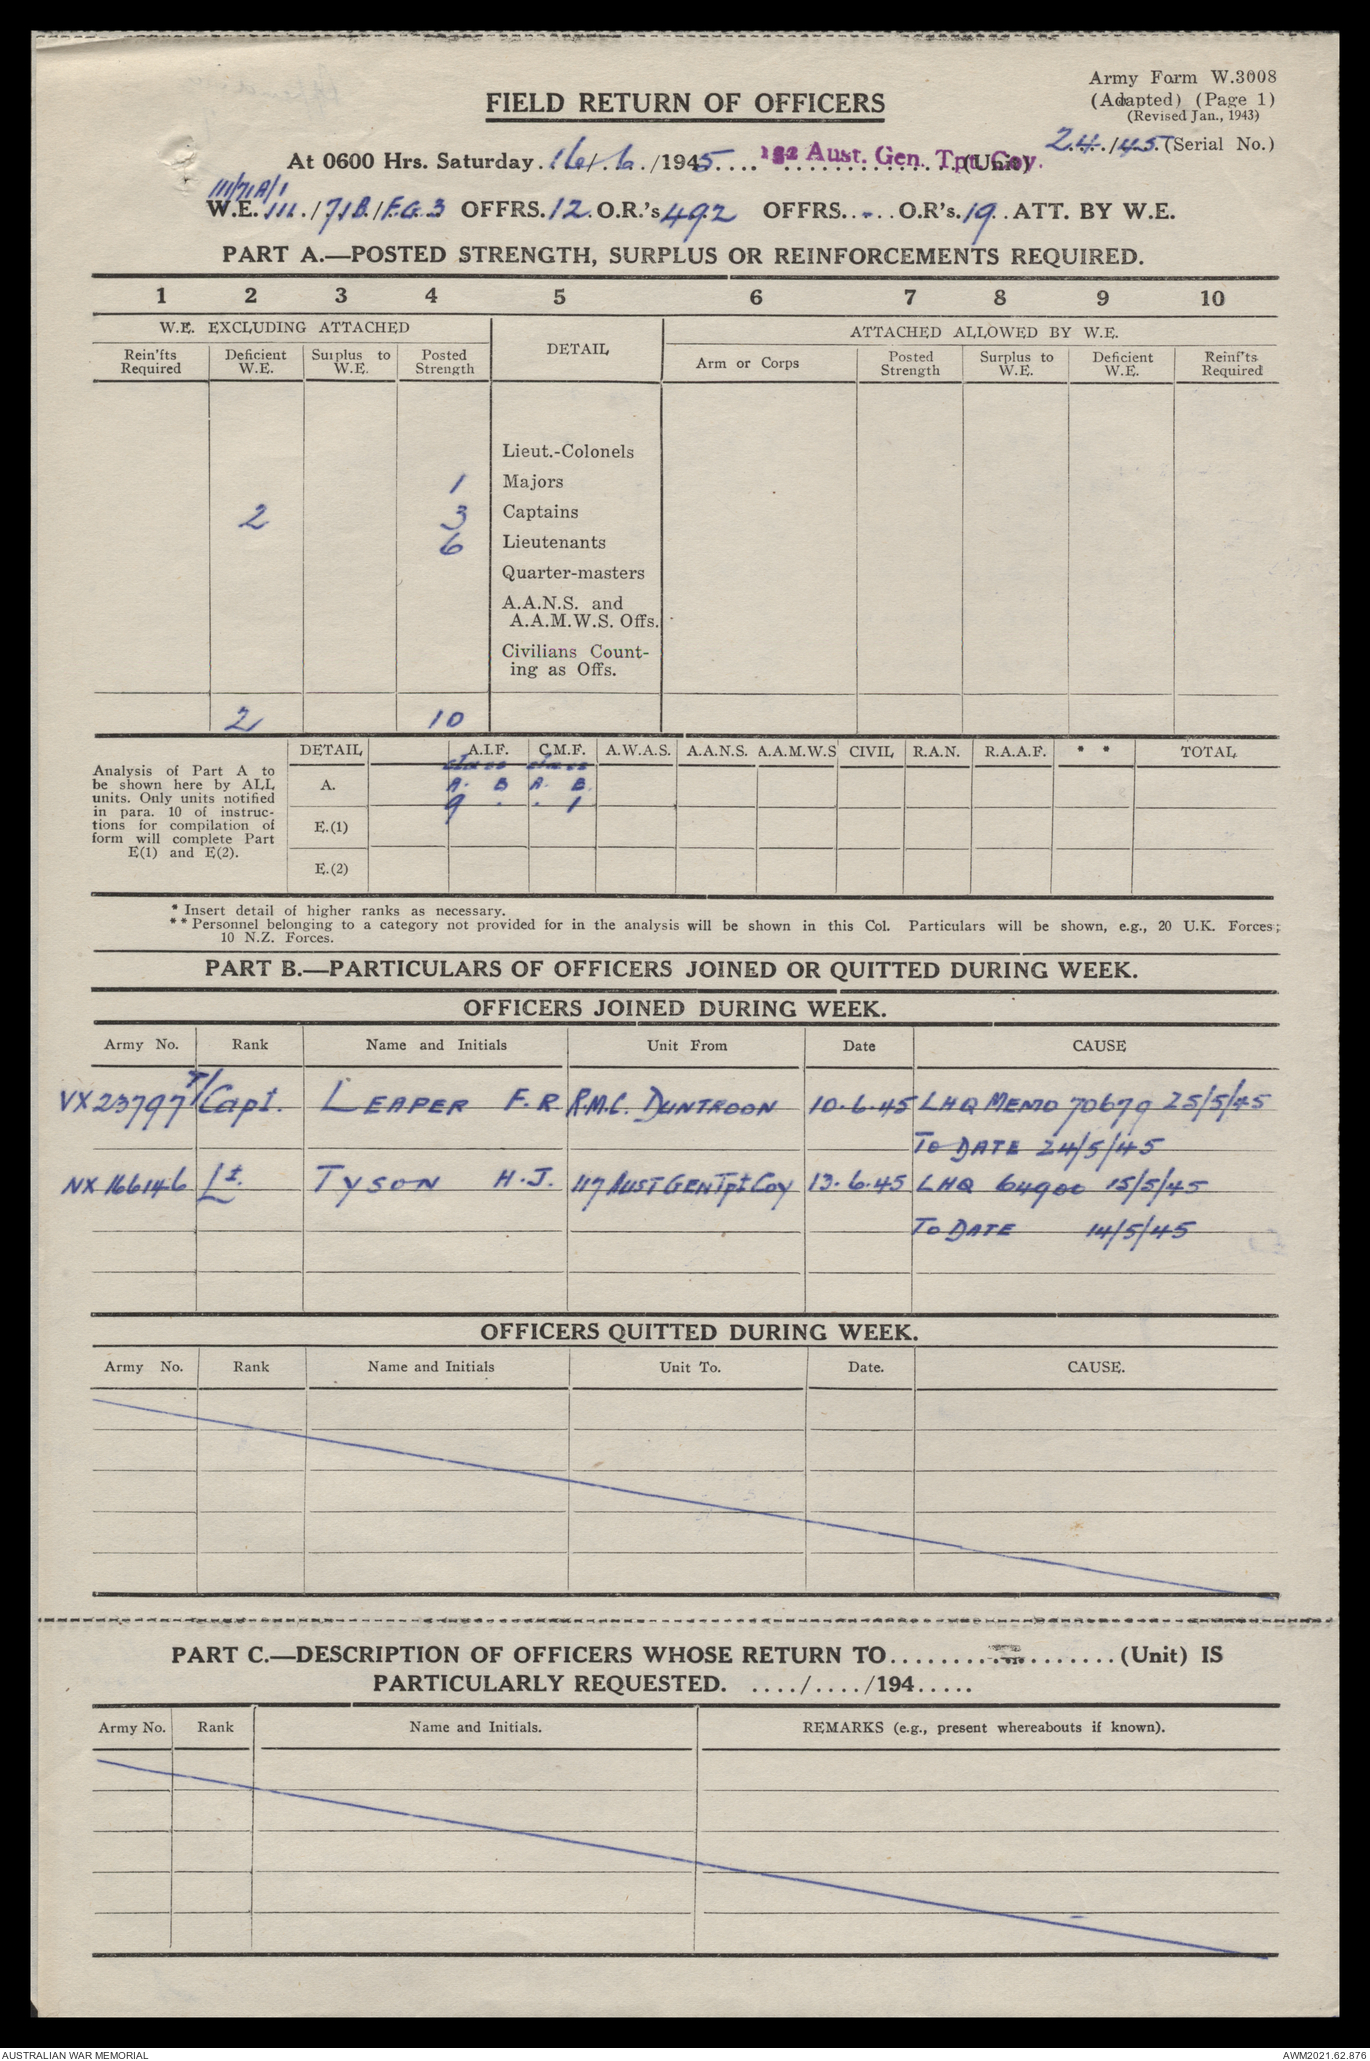 Army Form W.3008
(Adapted) (Page 1)
(Revised Jan., 1943)
FIELD RETURN OF OFFICERS
24/45 (Serial No.)
At 0600 Hrs. Saturday. 16/6/1945.... 152 Aust. Gen. Tpt. Coy. (Unit)
III/71A/1
W.E. III./71B./F.G.3 OFFRS. 12. O.R.'s 492 OFFRS. - . O.R's. 19. ATT. BY W.E.
PART A.—POSTED STRENGTH, SURPLUS OR REINFORCEMENTS REQUIRED.
1 2 3 4 5 6 7 8 9 10
W.E. EXCLUDING ATTACHED DETAIL ATTACHED ALLOWED BY W.E.
Rein'fts Required Deficient W.E. Surplus to W.E. Posted Strength Arm or Corps Posted Strength Surplus to W.E. Deficient W.E. Reinf'ts Required
Lieut.-Colonels
1 Majors
2 3 Captains
6 Lieutenants
Quarter-masters
A.A.N.S. and
A.A.M.W.S. Offs.
Civilians Count-
ing as Offs.
2 10
DETAIL A.I.F. C.M.F. A.W.A.S. A.A.N.S. A.A.M.W.S CIVIL R.A.N. R.A.A.F. * * TOTAL
class class
A. A. B A. B.
9 . . 1
E.(1)
E.(2)
Analysis of Part A to
be shown here by ALL
units. Only units notified
in para. 10 of instruc-
tions for compilation of
form will complete Part
E(1) and E(2).
* Insert detail of higher ranks as necessary.
** Personnel belonging to a category not provided for in the analysis will be shown in this Col. Particulars will be shown, e.g., 20 U.K. Forces;
10 N.Z. Forces.
PART B.—PARTICULARS OF OFFICERS JOINED OR QUITTED DURING WEEK.
OFFICERS JOINED DURING WEEK.
Army No. Rank Name and Initials Unit From Date CAUSE
VX23797 T/Capt. LEAPER F.R. R.M.C. DUNTROON 10.6.45 LHQ MEMO 70679 25/5/45
TO DATE 24/5/45
NX 166146 Lt. TYSON H.J. 117 AUST GEN Tpt Coy 13.6.45 LHQ 64900 15/5/45
TO DATE 14/5/45
OFFICERS QUITTED DURING WEEK.
Army No. Rank Name and Initials Unit To. Date. CAUSE.
PART C.—DESCRIPTION OF OFFICERS WHOSE RETURN TO....................(Unit) IS
PARTICULARLY REQUESTED. ..../..../194.....
Army No. Rank Name and Initials. REMARKS (e.g., present whereabouts if known).
AUSTRALIAN WAR MEMORIAL AWM2021.62.876